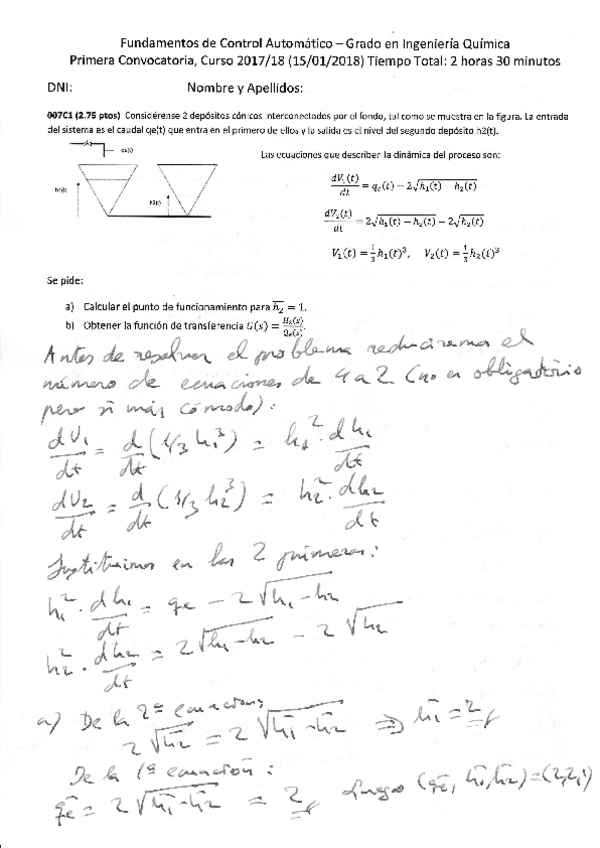 Fundamentos de Control Automático – Grado en Ingeniería Química
Primera Convocatoria, Curso 2017/18 (15/01/2018) Tiempo Total: 2 horas 30 minutos
DNI: Nombre y Apellidos:
007C1 (2.75 ptos) Considérense 2 depósitos cónicos interconectados por el fondo, tal como se muestra en la figura. La entrada
del sistema es el caudal qe(t) que entra en el primero de ellos y la salida es el nivel del segundo depósito h2(t).
qe(t)
h1(t)
h2(t)
Las ecuaciones que describen la dinámica del proceso son:
dV₁(t)/dt = qe(t) − 2√(h₁(t) − h₂(t))
dV₂(t)/dt = 2√(h₁(t) − h₂(t)) − 2√(h₂(t))
V₁(t) = 1/3 h₁(t)³, V₂(t) = 1/3 h₂(t)³
Se pide:
a) Calcular el punto de funcionamiento para h̄₂ = 1.
b) Obtener la función de transferencia G(s) = H₂(s)/Qe(s).
Antes de resolver el problema reduciremos el
número de ecuaciones de 4 a 2 (no es obligatorio
pero sí más cómodo):
dV₁/dt = d/dt (1/3 h₁³) = h₁² · dh₁/dt
dV₂/dt = d/dt (1/3 h₂³) = h₂² · dh₂/dt
Sustituimos en las 2 primeras:
h₁² · dh₁/dt = qe − 2√(h₁−h₂)
h₂² · dh₂/dt = 2√(h₁−h₂) − 2√h₂
a) De la 2ª ecuación:
2√h̄₂ = 2√(h̄₁−h̄₂) ⇒ h̄₁ = 2
De la 1ª ecuación:
q̄e = 2√(h̄₁−h̄₂) = 2 Luego (q̄e, h̄₁, h̄₂) = (2,2,1)